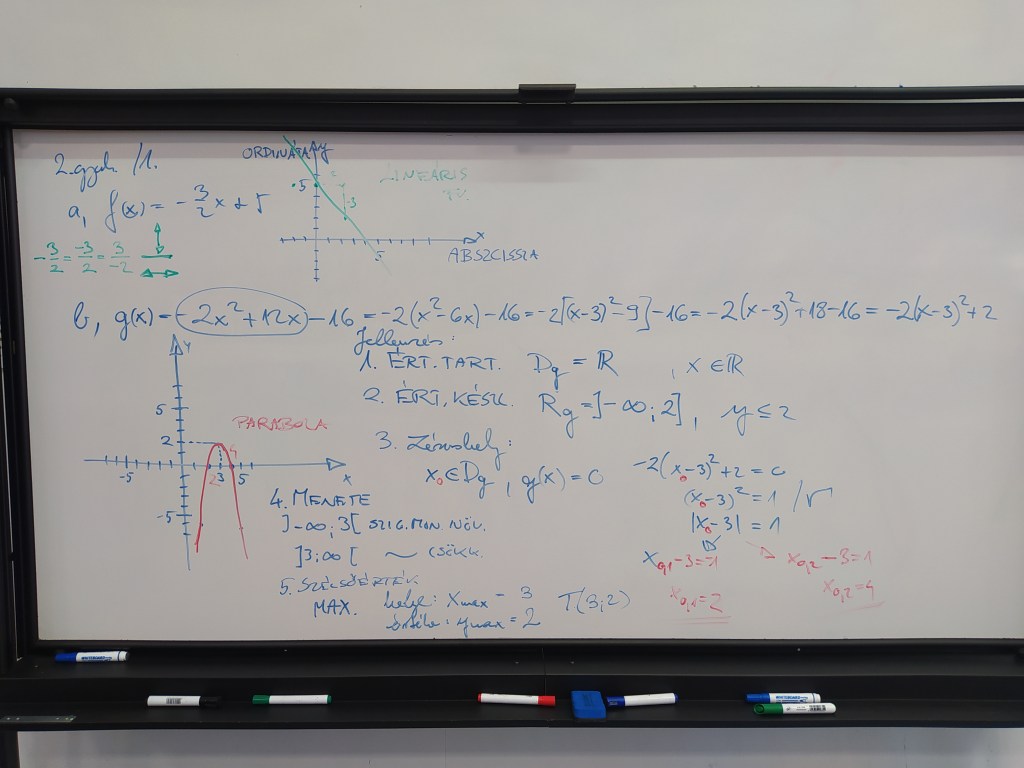 2. gyak /1.
a, f(x) = -3/2 x + 5
-3/2 = -3/2 = 3/-2
ORDINÁTA y
5
-3
LINEÁRIS
FV.
x
5
ABSZCISSZA
b, g(x) = -2x²+12x-16 = -2(x²-6x)-16 = -2[(x-3)²-9]-16 = -2(x-3)²+18-16 = -2(x-3)²+2
y
5
2
PARABOLA
-5 2 3 4 5
x
-5
Jellemzés:
1. ÉRT. TART. Dg = ℝ , x ∈ ℝ
2. ÉRT. KÉSZL. Rg = ]-∞; 2] , y ≤ 2
3. Zérushely:
x₀ ∈ Dg , g(x) = 0
-2(x₀-3)²+2 = 0
(x₀-3)² = 1 /√
|x₀-3| = 1
x₀,₁-3 = -1
x₀,₁ = 2
x₀,₂-3 = 1
x₀,₂ = 4
4. MENETE
]-∞; 3[ SZIG. MON. NÖV.
]3; ∞[ ~ CSÖKK.
5. SZÉLSŐÉRTÉK
MAX. helye: xmax = 3 T(3; 2)
értéke: ymax = 2